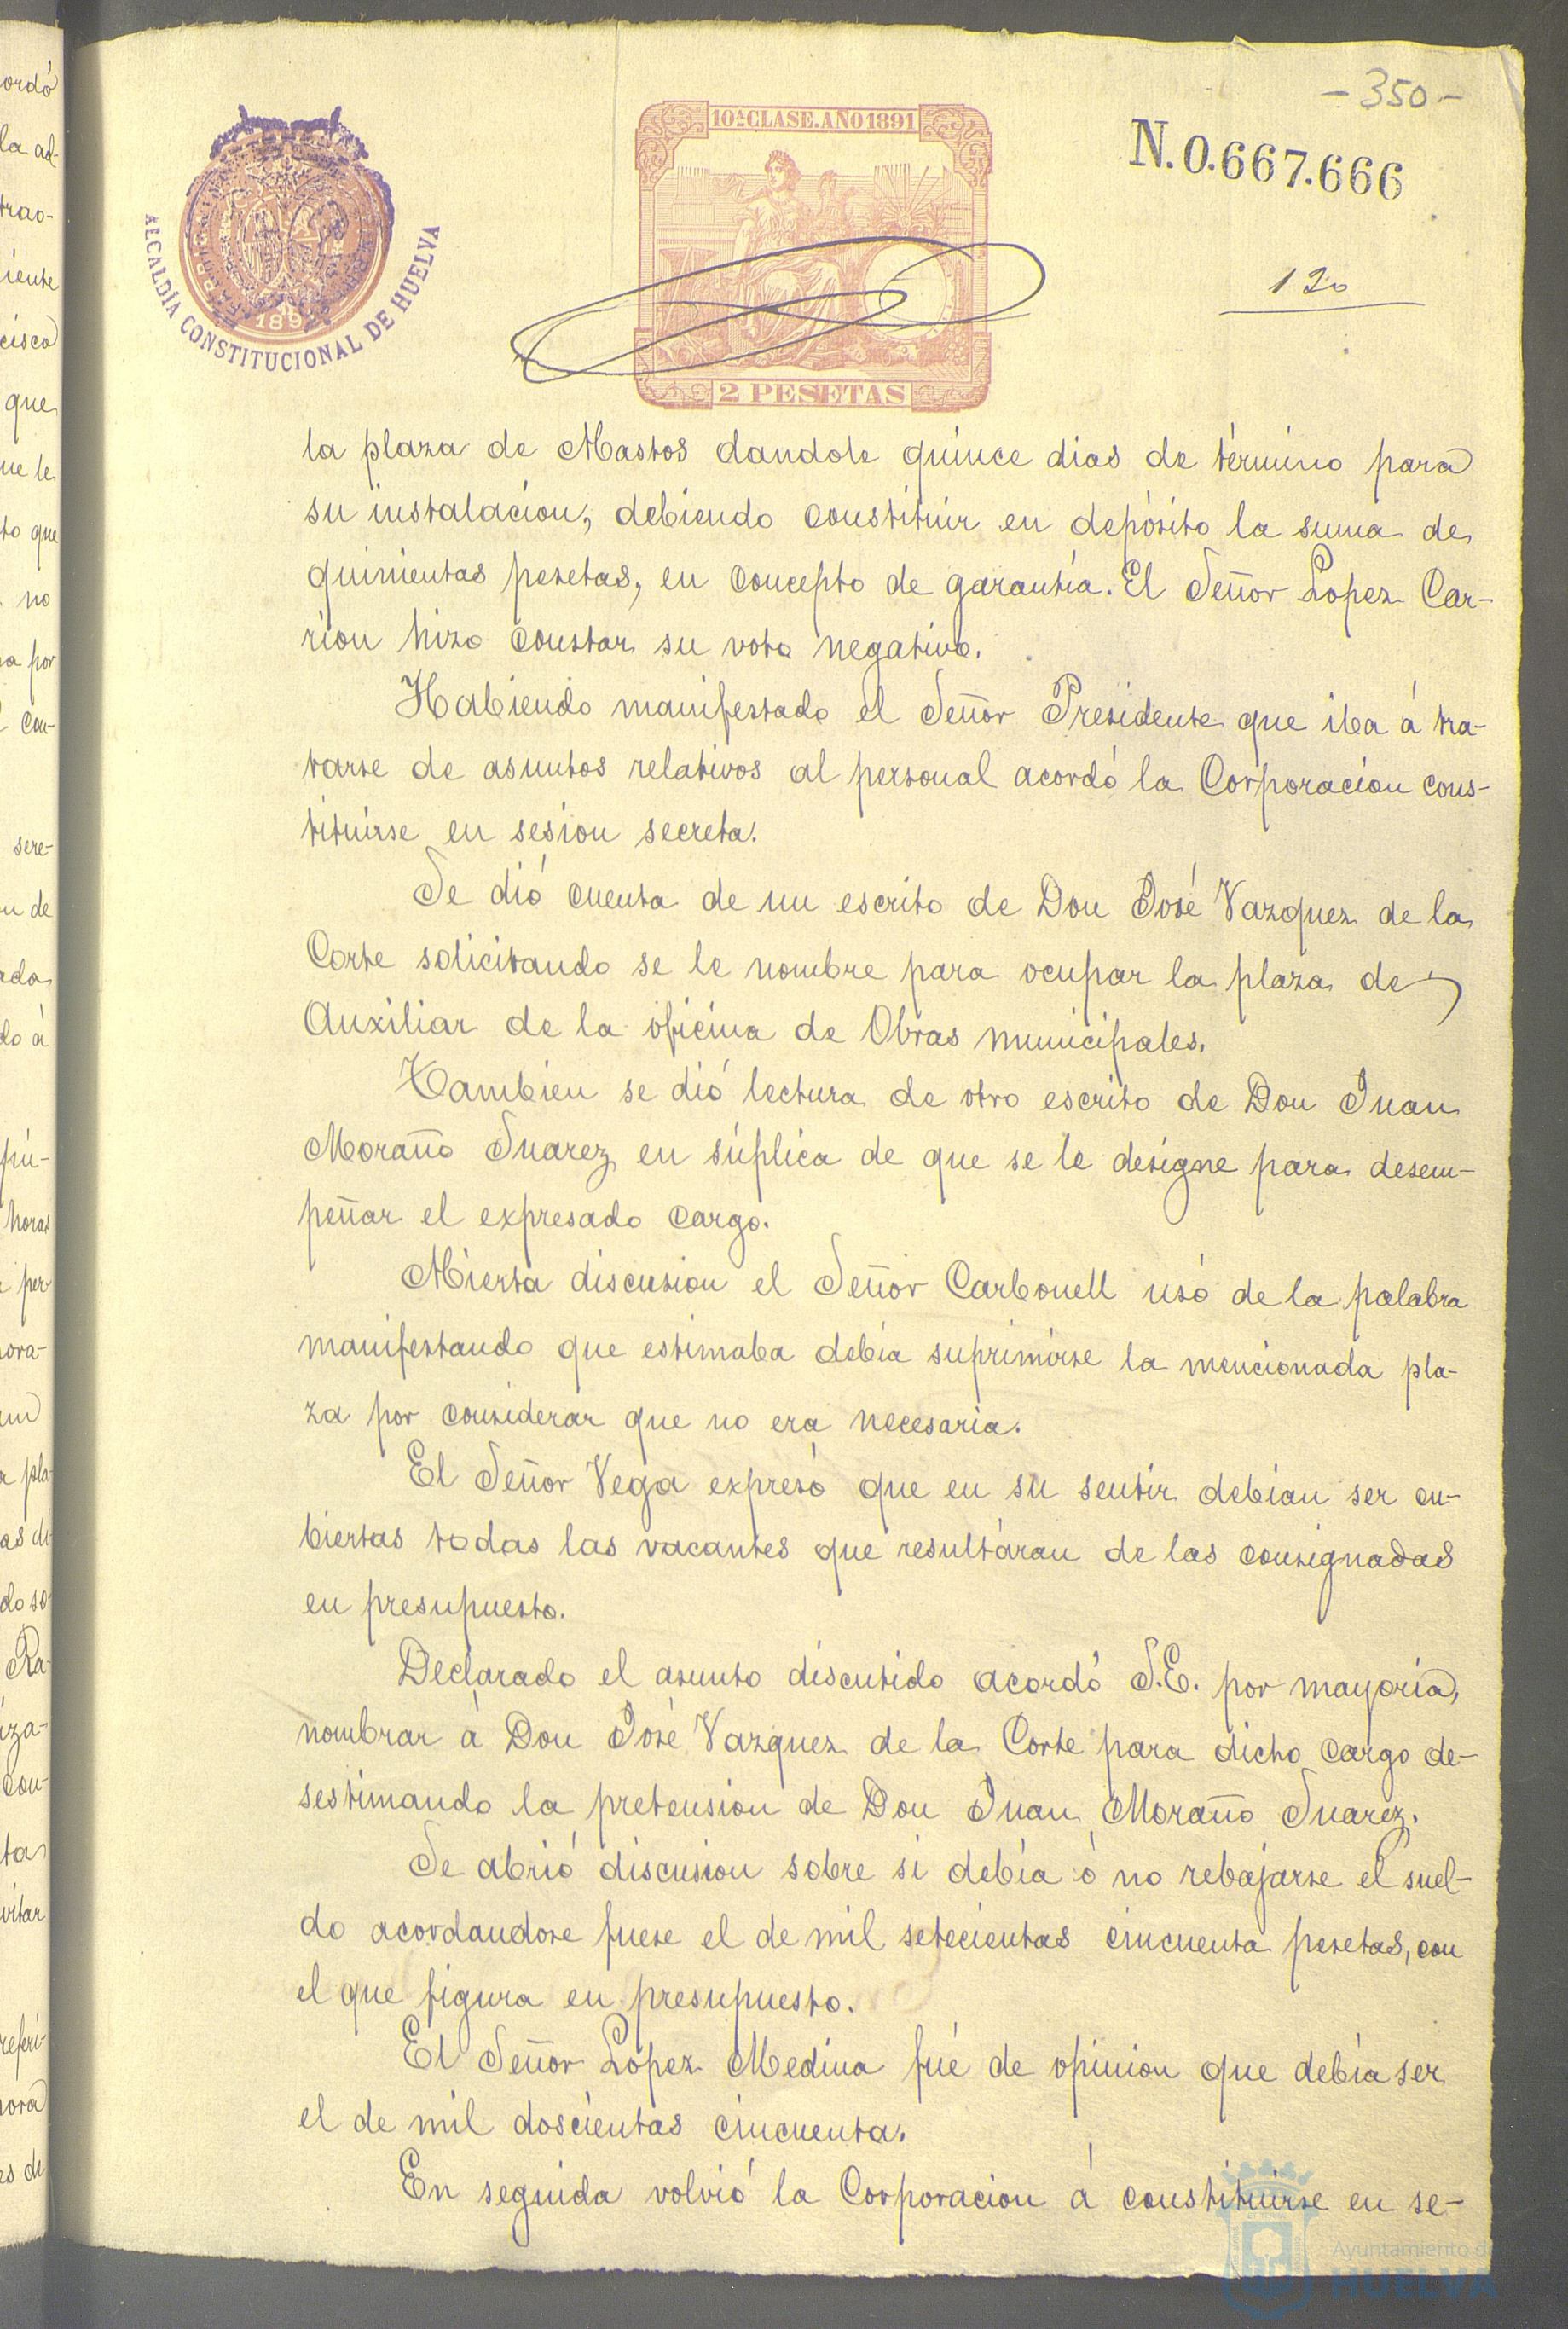 -350-
10ª CLASE. AÑO 1891
N. 0.667.666
120
ALCALDÍA CONSTITUCIONAL DE HUELVA
189
2 PESETAS
la plaza de Abastos dandole quince dias de término para
su instalación, debiendo constituir en depósito la suma de
quinientas pesetas, en concepto de garantía. El Señor Lopez Car-
rion hizo constar su voto negativo.
Habiendo manifestado el Señor Presidente que iba á tra-
tarse de asuntos relativos al personal acordó la Corporación cons-
tituirse en sesion secreta.
Se dió cuenta de un escrito de Don José Vazquez de la
Corte solicitando se le nombre para ocupar la plaza de
Auxiliar de la oficina de Obras municipales.
Tambien se dió lectura de otro escrito de Don Juan
Moraño Suarez en súplica de que se le designe para desem-
peñar el expresado cargo.
Abierta discusion el Señor Carbonell usó de la palabra
manifestando que estimaba debía suprimirse la mencionada pla-
za por considerar que no era necesaria.
El Señor Vega expresó que en su sentir debían ser cu-
biertas todas las vacantes que resultáran de las consignadas
en presupuesto.
Declarado el asunto discutido acordó S.E. por mayoría,
nombrar á Don José Vazquez de la Corte para dicho cargo de-
sestimando la pretension de Don Juan Moraño Suarez.
Se abrió discusion sobre si debía ó no rebajarse el suel-
do acordandose fuese el de mil setecientas cincuenta pesetas, con
el que figura en presupuesto.
El Señor Lopez Medina fué de opinion que debía ser
el de mil doscientas cincuenta.
En seguida volvió la Corporacion á constituirse en se-
Ayuntamiento de
HUELVA